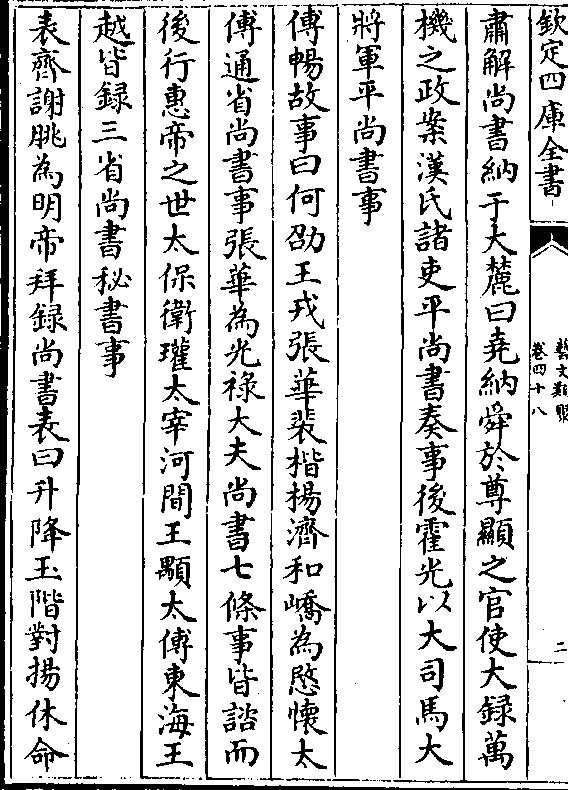 欽定四庫全書
藝文類聚
卷四十八
二
肅解尚書納于大麓曰堯納舜於尊顯之官使大録萬
機之政案漢氏諸吏平尚書奏事後霍光以大司馬大
將軍平尚書事
傅暢故事曰何劭王戎張華裴楷楊濟和嶠為愍懷太
傅通省尚書事張華為光祿大夫尚書七條事皆諮而
後行惠帝之世太保衛瓘太宰河間王顒太傅東海王
越皆録三省尚書秘書事
表齊謝朓為明帝拜録尚書表曰升降玉階對揚休命